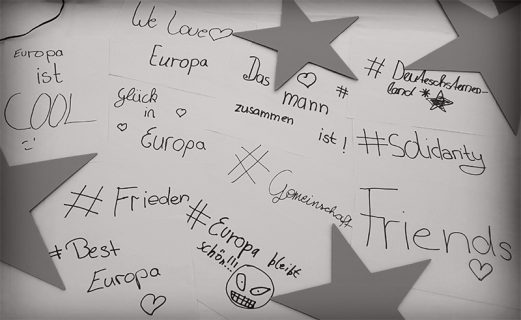 We Love
Europa
Europa
ist
COOL
Das
mann
#
zusammen
ist!
# Deutschsternen-
land *
Glück
in
Europa
#Solidarity
#
Gemeinschaft
# Frieden
#Europa bleibt
schön!!!
Friends
#Best
Europa